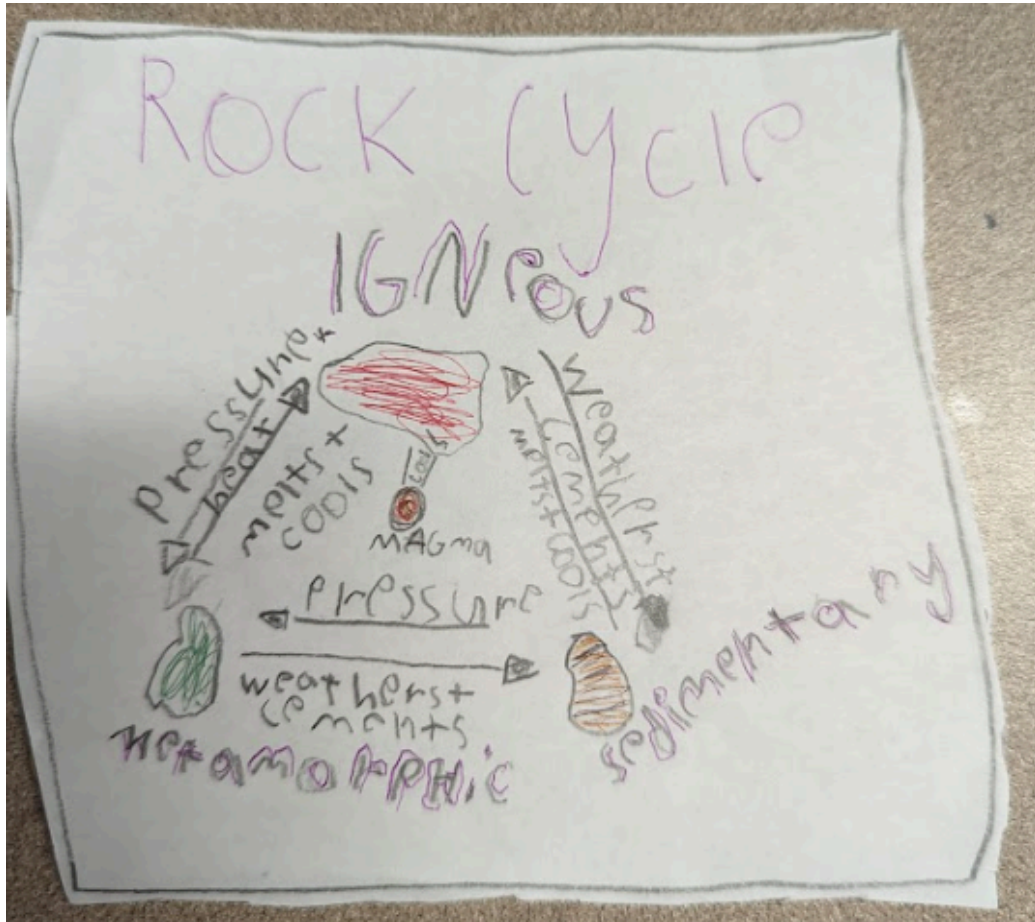 ROCK CYCLE
IGNEOUS
Pressure +
heat
melts +
cools
cools
MAGMA
Weathers +
cements
melts + cools
Pressure
weathers +
cements
Metamorphic
sedimentary